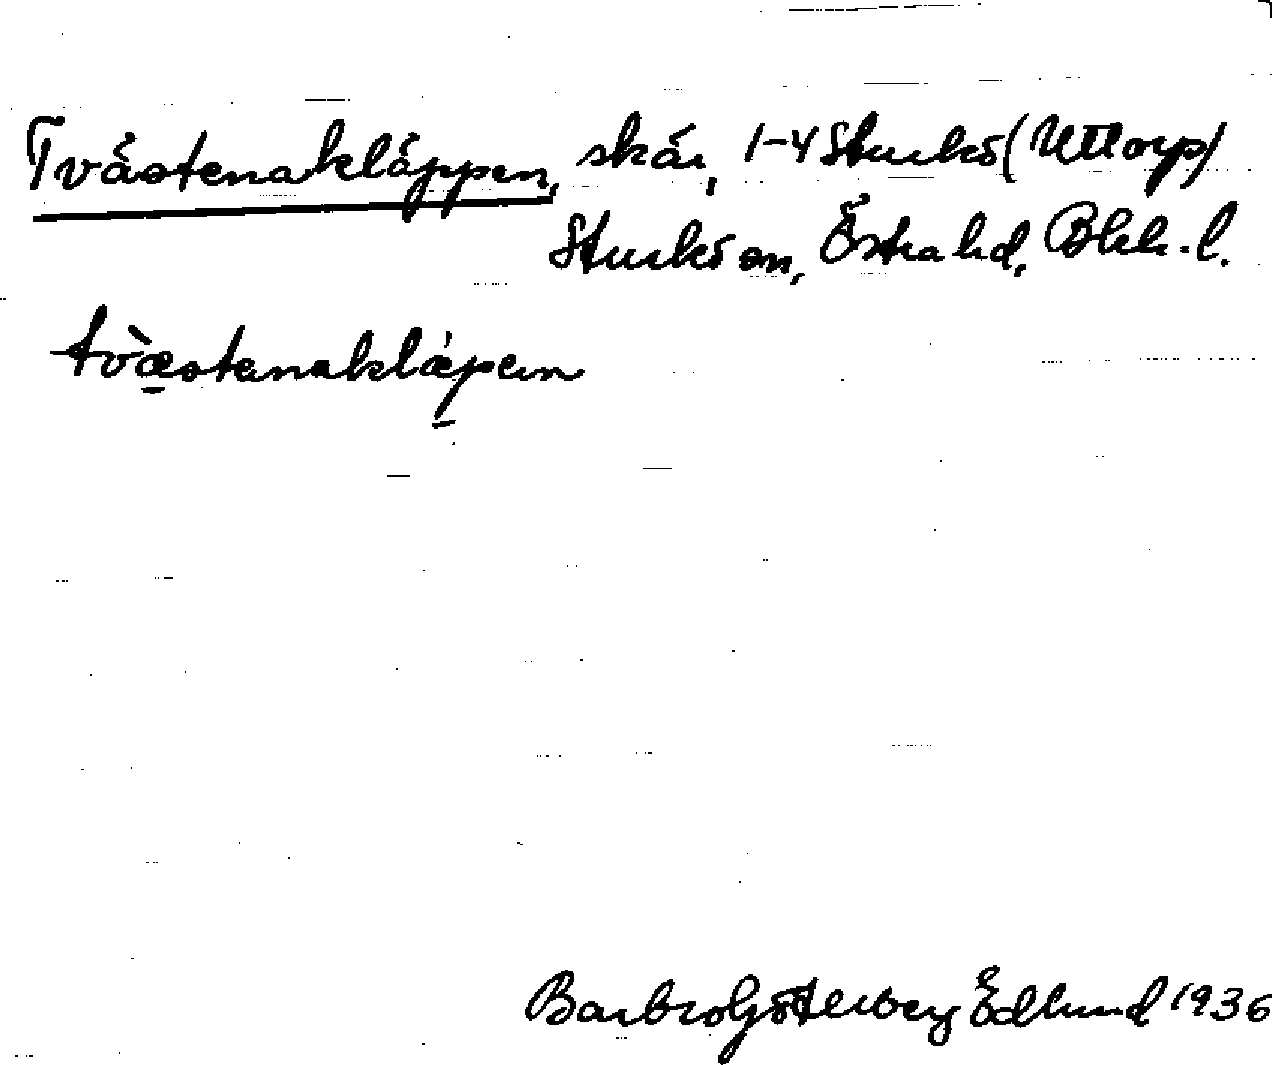 Tvästenakläppen, skär, 1-4 Sturkö (Uttorp)
Sturkö sn, Östra hd, Blek. l.
tvæ̀stenaklæ̀pen
Barbro Göterberg Edlund 1936